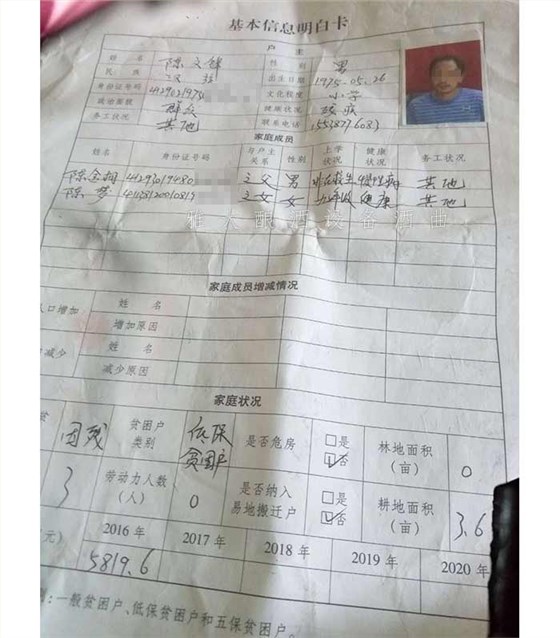 基本信息明白卡
户 主
姓 名 陈文锋 性 别 男
民 族 汉族 出生日期 1975-05-26
身份证号码 41290219750 文化程度 小学
政治面貌 群众 健康状况 残疾
务工状况 其他 联系电话
家庭成员
姓名 身份证号码 与户主关系 性别 上学状况 健康状况 务工状况
之父 男 非在校生 慢性病 其他
陈梦 之女 女 健康 其他
雅大酿酒设备酒曲
家庭成员增减情况
人口增加 姓 名
增加原因
减少 姓 名
减少原因
家庭状况
因残 贫困户类别 低保贫困户 是否危房 □是 ☑否 林地面积（亩） 0
3 劳动力人数（人） 0 是否纳入易地搬迁户 □是 ☑否 耕地面积（亩） 3.6
元） 2016年 2017年 2018年 2019年 2020年
5819.6
：一般贫困户、低保贫困户和五保贫困户。